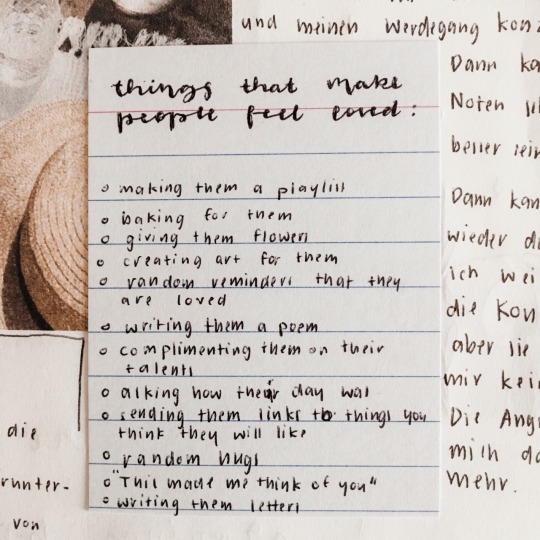 und meinen Werdegang
things that make
people feel loved:
o making them a playlist
o baking for them
o giving them flowers
o creating art for them
o random reminders that they
are loved
o writing them a poem
o complimenting them on their
talents
o asking how their day was
o sending them links to things you
think they will like
o random hugs
o "This made me think of you"
o writing them letters
Dann
Noten
besser
Dann
wieder
ich
die
aber sie
mir
Die
mich
mehr.
die
runter-
von